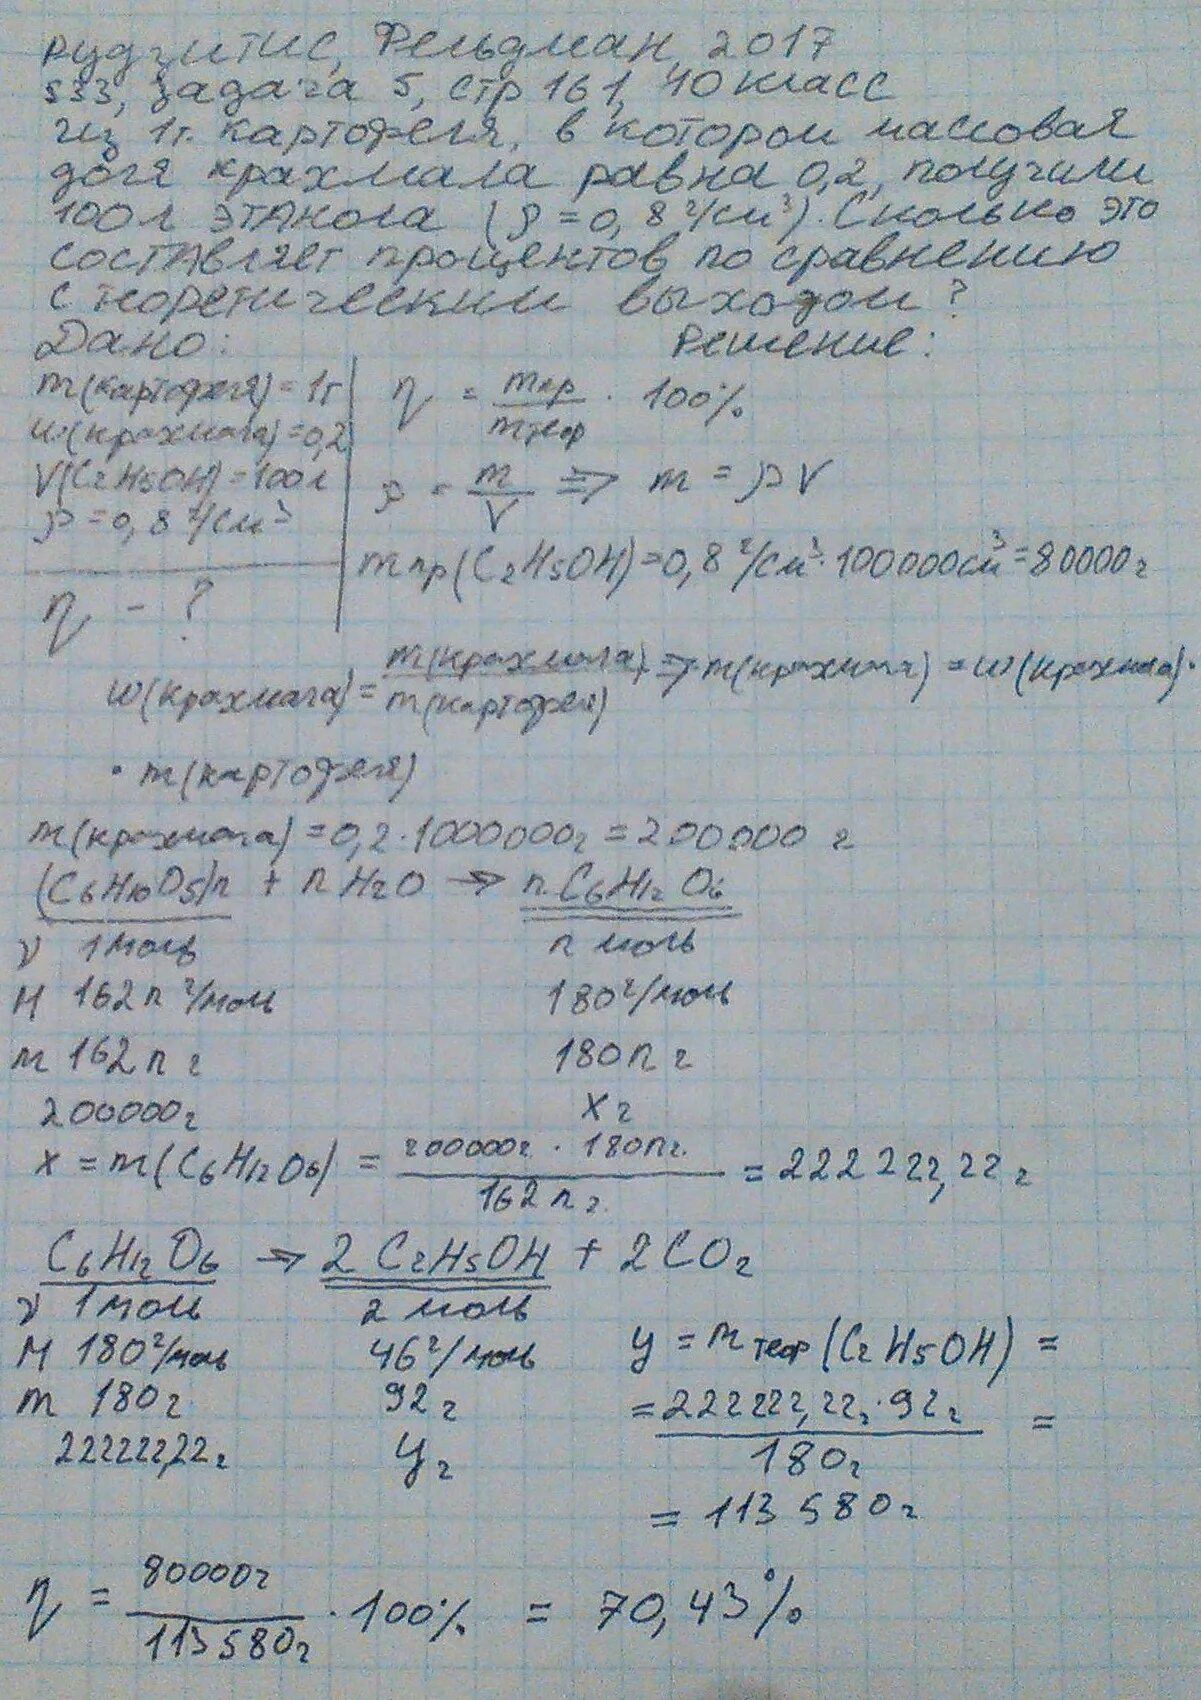 Рудзитис, Фельдман, 2017
§33, задача 5, стр 161, 10 класс
Из 1т. картофеля, в котором массовая
доля крахмала равна 0,2, получили
100 л этанола (ρ = 0,8 г/см³). Сколько это
составляет процентов по сравнению
с теоретическим выходом?
Дано: Решение:
m(картофеля) = 1т
w(крахмала) = 0,2
V(C₂H₅OH) = 100 л
ρ = 0,8 г/см³
η - ?
η = mпр / mтеор · 100%
ρ = m / V ⇒ m = ρV
mпр(C₂H₅OH) = 0,8 г/см³ · 100000 см³ = 80000 г
w(крахмала) = m(крахмала) / m(картофеля) ⇒ m(крахмала) = w(крахмала) ·
· m(картофеля)
m(крахмала) = 0,2 · 1000000г = 200000 г
(C₆H₁₀O₅)n + n H₂O → n C₆H₁₂O₆
ν 1 моль n моль
M 162n г/моль 180 г/моль
m 162n г 180n г
200000 г x г
x = m(C₆H₁₂O₆) = 200000г · 180nг. / 162n г. = 222 222,22 г
C₆H₁₂O₆ → 2 C₂H₅OH + 2CO₂
ν 1 моль 2 моль
M 180 г/моль 46 г/моль
m 180 г 92 г
222222,22 г y г
y = mтеор(C₂H₅OH) =
= 222222,22г · 92г / 180г =
= 113 580 г
η = 80000г / 113580г · 100% = 70,43%